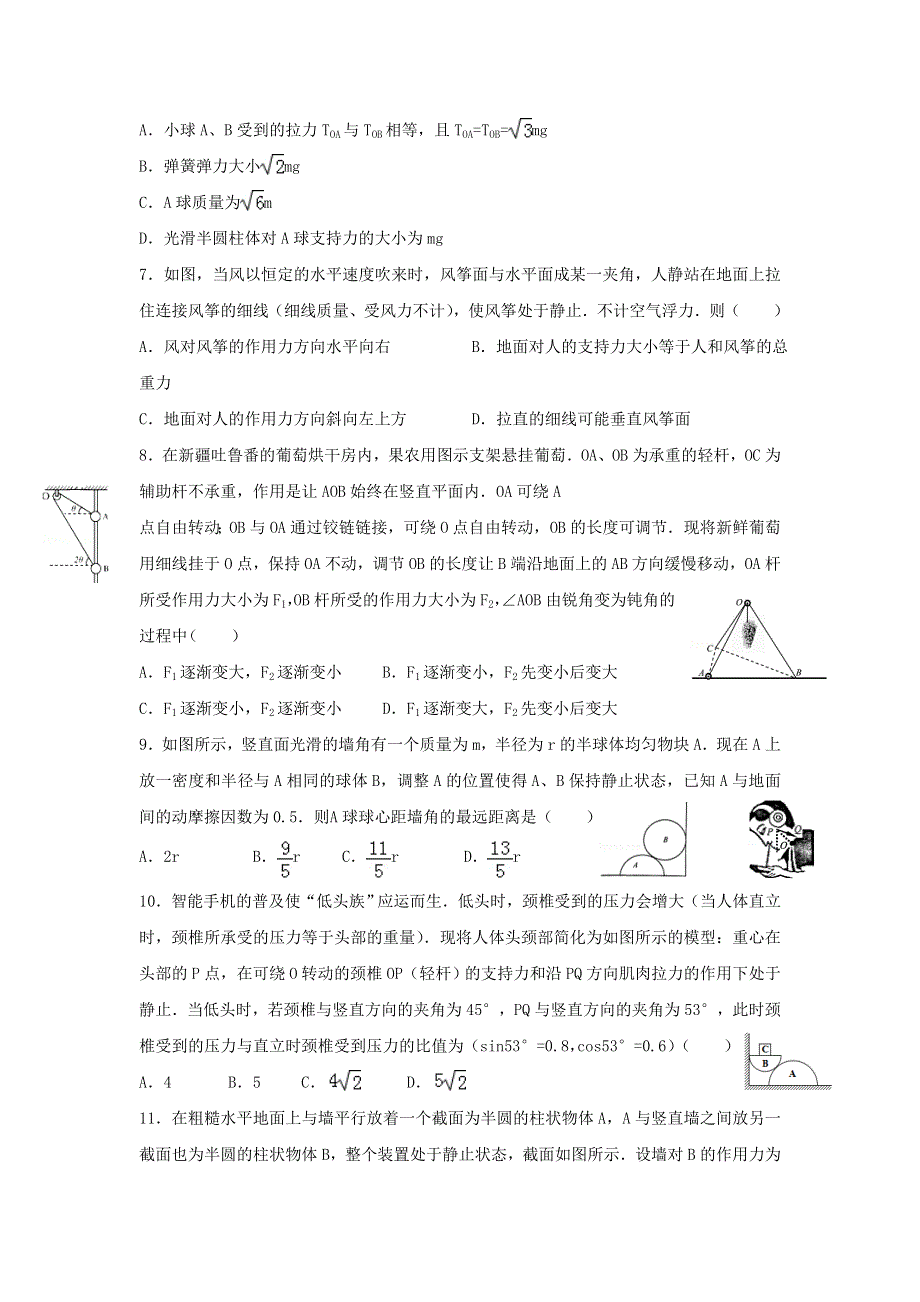 A．小球A、B受到的拉力T_OA与T_OB相等，且T_OA=T_OB=√3mg
B．弹簧弹力大小√2mg
C．A球质量为√6m
D．光滑半圆柱体对A球支持力的大小为mg
7．如图，当风以恒定的水平速度吹来时，风筝面与水平面成某一夹角，人静站在地面上拉
住连接风筝的细线（细线质量、受风力不计），使风筝处于静止．不计空气浮力．则（　　）
A．风对风筝的作用力方向水平向右　　B．地面对人的支持力大小等于人和风筝的总
重力
C．地面对人的作用力方向斜向左上方　　D．拉直的细线可能垂直风筝面
8．在新疆吐鲁番的葡萄烘干房内，果农用图示支架悬挂葡萄．OA、OB为承重的轻杆，OC为
辅助杆不承重，作用是让AOB始终在竖直平面内．OA可绕A
点自由转动；OB与OA通过铰链链接，可绕O点自由转动，OB的长度可调节．现将新鲜葡萄
用细线挂于O点，保持OA不动，调节OB的长度让B端沿地面上的AB方向缓慢移动，OA杆
所受作用力大小为F₁，OB杆所受的作用力大小为F₂，∠AOB由锐角变为钝角的
过程中（　　）
A．F₁逐渐变大，F₂逐渐变小　　B．F₁逐渐变小，F₂先变小后变大
C．F₁逐渐变小，F₂逐渐变小　　D．F₁逐渐变大，F₂先变小后变大
O
θ
A
2θ
B
O
C
A
B
9．如图所示，竖直面光滑的墙角有一个质量为m，半径为r的半球体均匀物块A．现在A上
放一密度和半径与A相同的球体B，调整A的位置使得A、B保持静止状态，已知A与地面
间的动摩擦因数为0.5．则A球球心距墙角的最远距离是（　　）
A．2r　　B．9/5r　　C．11/5r　　D．13/5r
B
A
P
Q
O
10．智能手机的普及使“低头族”应运而生．低头时，颈椎受到的压力会增大（当人体直立
时，颈椎所承受的压力等于头部的重量）．现将人体头颈部简化为如图所示的模型：重心在
头部的P点，在可绕O转动的颈椎OP（轻杆）的支持力和沿PQ方向肌肉拉力的作用下处于
静止．当低头时，若颈椎与竖直方向的夹角为45°，PQ与竖直方向的夹角为53°，此时颈
椎受到的压力与直立时颈椎受到压力的比值为（sin53°=0.8，cos53°=0.6）（　　）
A．4　　B．5　　C．4√2　　D．5√2
C
B
A
11．在粗糙水平地面上与墙平行放着一个截面为半圆的柱状物体A，A与竖直墙之间放另一
截面也为半圆的柱状物体B，整个装置处于静止状态，截面如图所示．设墙对B的作用力为